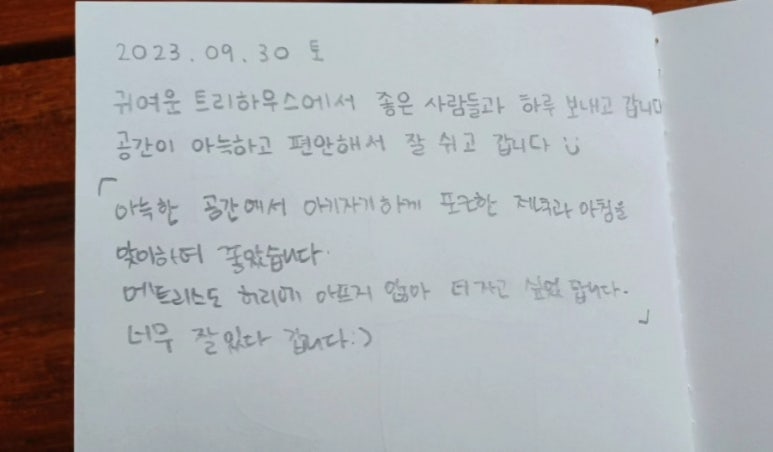 2023.09.30 토
귀여운 트리하우스에서 좋은 사람들과 하루 보내고 갑니다
공간이 아늑하고 편안해서 잘 쉬고 갑니다 :)
「
아늑한 공간에서 아기자기하게 포근한 제주과 아침을
맞이하여 좋았습니다.
메트리스도 허리에 아프지 않아 더 자고 싶었답니다.
너무 잘 있다 갑니다:)
」